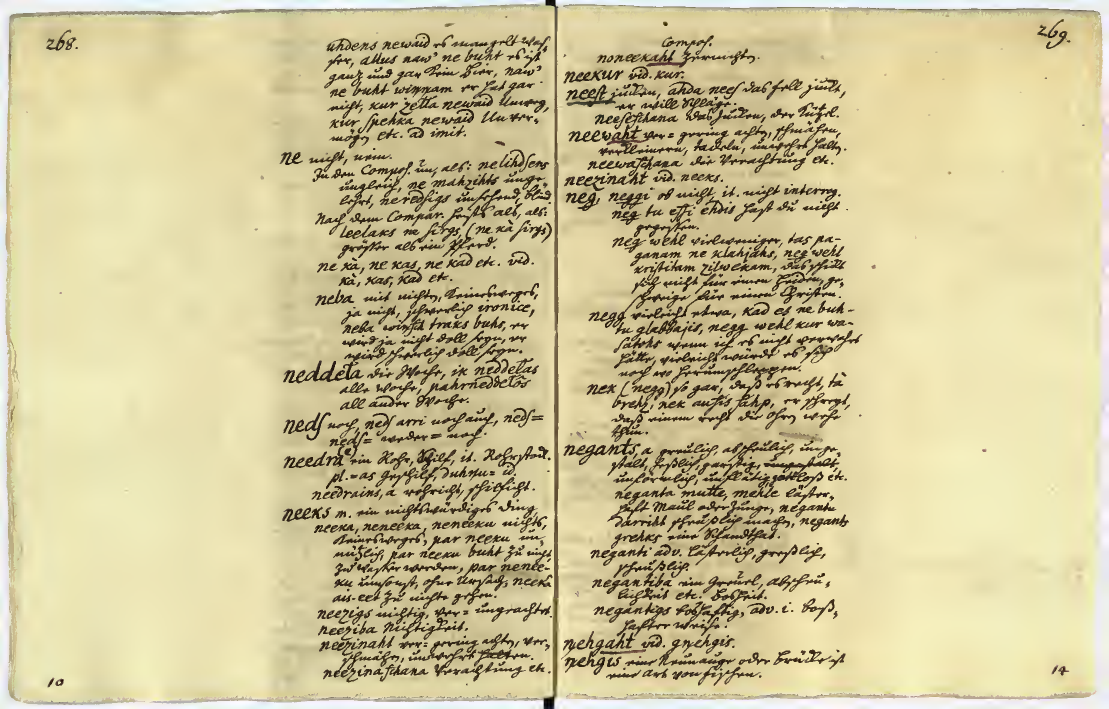 268.
uhdens newaid es mangelt Was-
ser, allus naw' ne buht es ist
ganz und gar kein Bier, naw'
ne buht winnam er hat gar
nicht, kur zella newaid Unweg,
kur spehka newaid Unver-
mögen etc. ad imit.
ne nicht, nein.
In den Compos. un, als: nelihdsens
ungleich, ne mahzihts unge-
lehrt, neredsigs unsehend, blind
Nach dem Compar. heists als, als:
leelaks ne sirgs, (ne kà sirgs)
grösser als ein Pferd.
ne kà, ne kas, ne kad etc. vid.
kà, kas, kad etc.
neba mit nichten, keinesweges,
ja nicht, schwerlich ironice,
neba winsch traks buhs, er
wird ja nicht doll seyn, er
wird schwerlich doll seyn.
neddeła die Woche, ik neddełas
alle Woche, pahrneddełàs
all ander Woche.
neds noch, neds arri noch auch, neds=
neds= weder= noch.
needra ein Rohr, Schilf, it. Rohrstock.
pl.=as Geschilf, duhnu= id.
needrains, a rohricht, schilficht.
neeks m. ein nichtswürdiges Ding
neeka, neneeka, neneeku nichts,
keinesweges, par neeku un-
nützlich, par neeku buht zu nicht,
zu Wasser werden, par nenee-
ku umsonst, ohne Ursach, neekà
ais-eet zu nichte gehen.
neezigs nichtig, ver= ungeachtet.
neeziba Nichtigkeit.
neezinaht ver= gering achten, ver-
schmähen, unwehrt halten.
neezinaschana Verachtung etc.
10
269.
Compos.
noneekaht zernichten.
neekur vid. kur.
neest jucken, ahda nees das fell juckt,
er will Schläge.
neeseschana das Jucken, der Kützel.
neewaht ver= gering achten, schmähen,
verkleinern, tadeln, unwehrt halten.
neewaschana die Verachtung etc.
neezinaht vid. neeks.
neg, neggi ob nicht, it. nicht interrog.
neg tu essi ehdis hast du nicht
gegessen.
neg wehl vielweniger, tas pa-
ganam ne klahjahs, neg wehl
kristitam zilwekam, das schickt
sich nicht für einen Heiden, ge-
schweige für einen Christen.
negg vieleicht etwa, kad es ne buh-
tu glabbajis, negg wehl kur wa-
ſatohs wenn ich es nicht verwahrt
hätte, vieleicht würde es sich
noch wo herumschleppen.
nek (negg) so gar, daß es recht, tà
brehz, nek ausis sahp, er schreyt,
daß einem recht die Ohren wehe
thun.
negants, a greulich, abscheulich, unge-
stalt, heslich, garstig, ungestalt,
unförmlich, unflätig, gottloß etc.
neganta mutte, mehle läster-
haft Maul oder Zunge, negantu
darriht scheuslich machen, negants
grehks eine Schandthat.
neganti adv. lästerlich, greslich,
scheuslich.
negantiba ein Greuel, abscheu-
lichkeit etc. Bosheit.
negantigs boshaftig, adv. i. boß-
hafter weise.
nehgaht vid. gnehgis.
nehgis eine Neunauge oder Brücke ist
eine Art von Fischen.
14